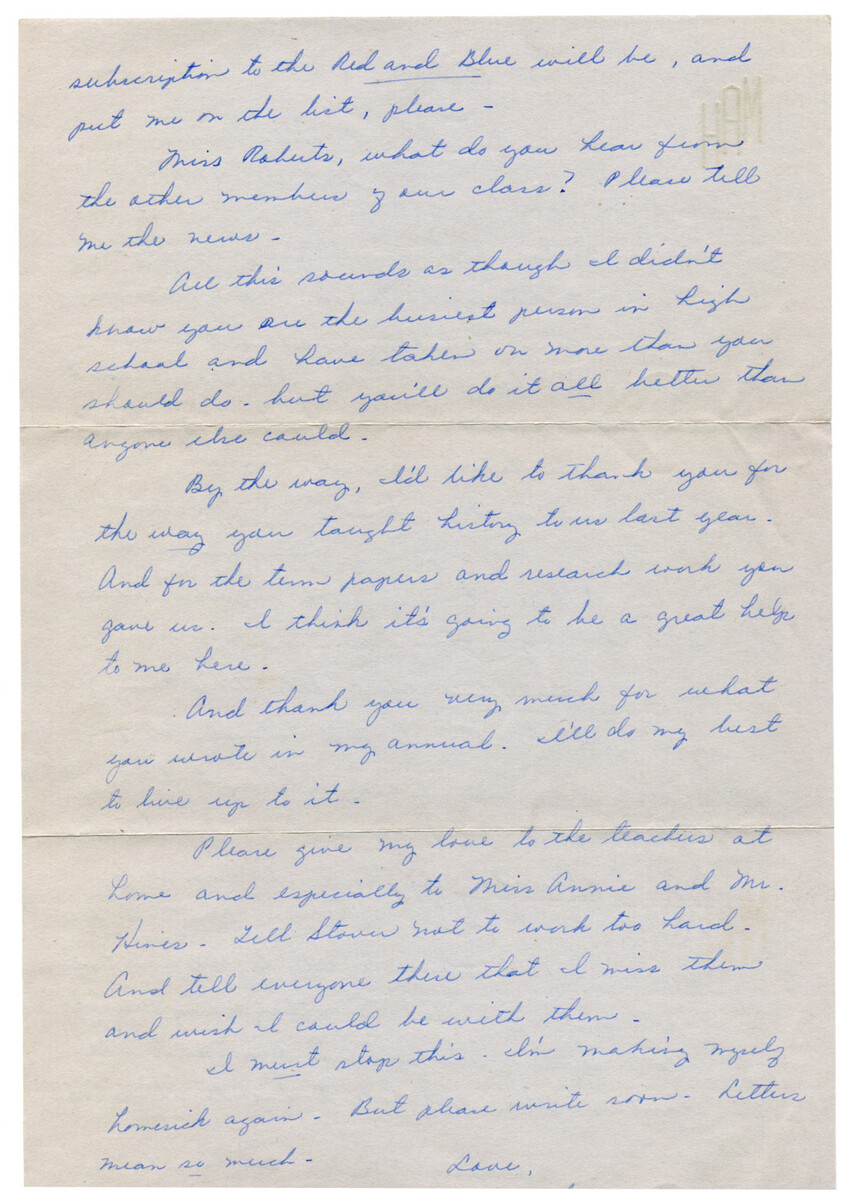 subscription to the Red and Blue will be, and
put me on the list, please -
Miss Roberts, what do you hear from
the other members of our class? Please tell
me the news -
All this sounds as though I didn't
know you are the busiest person in high
school and have taken on more than you
should do - but you'll do it all better than
anyone else could -
By the way, I'd like to thank you for
the way you taught history to us last year.
And for the term papers and research work you
gave us. I think it's going to be a great help
to me here.
And thank you very much for what
you wrote in my annual. I'll do my best
to live up to it -
Please give my love to the teachers at
home and especially to Miss Annie and Mr.
Hines - Tell Stover not to work too hard -
And tell everyone there that I miss them
and wish I could be with them -
I must stop this - I'm making myself
homesick again - But please write soon - Letters
mean so much -
Love,